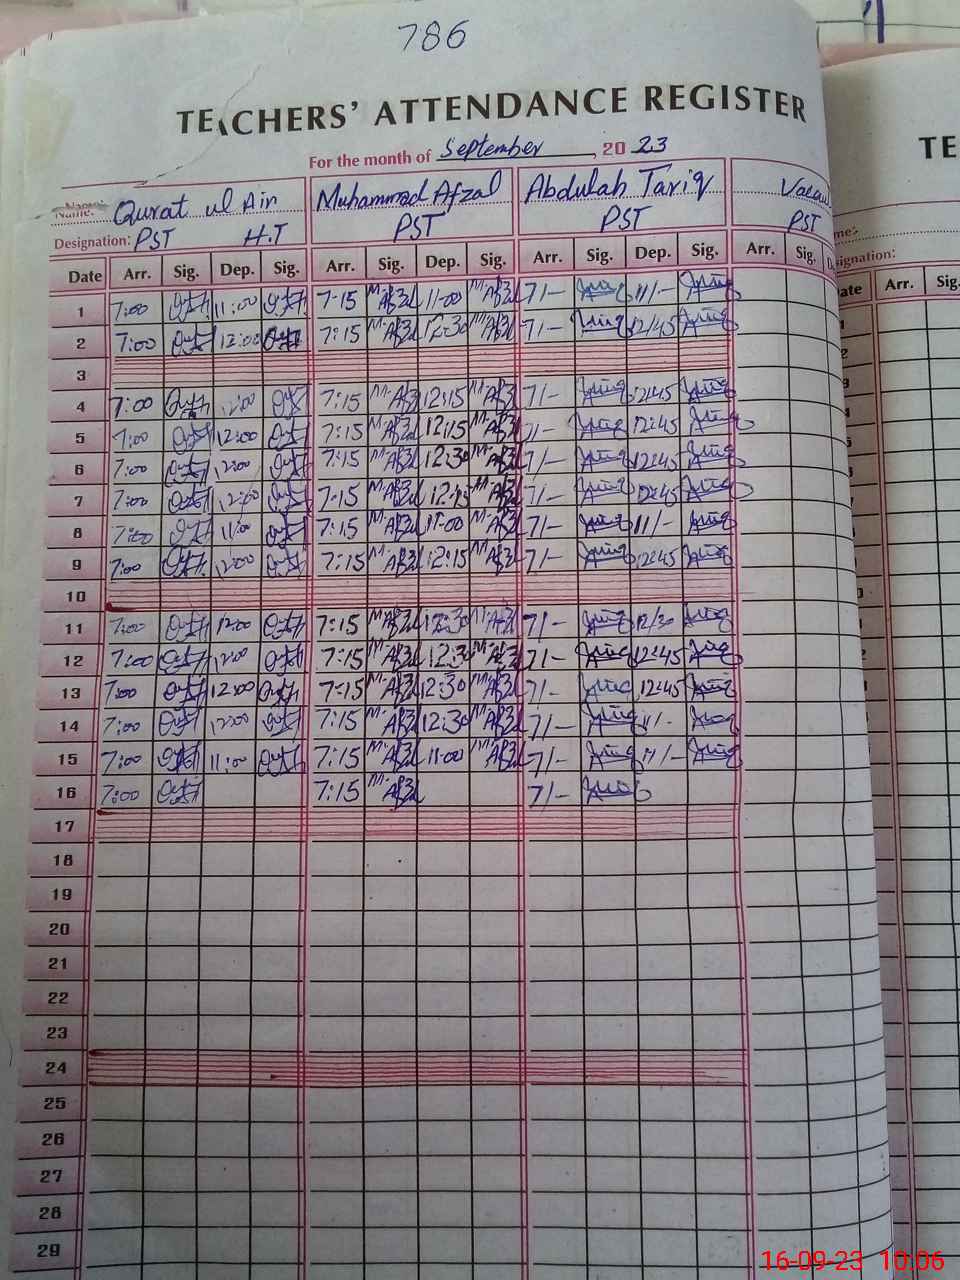 786
TEACHERS' ATTENDANCE REGISTER
For the month of September, 2023
TE
Name: Qurat ul Ain Muhammad Afzal Abdulah Tariq
Designation: PST H.T PST PST PST
Date Arr. Sig. Dep. Sig. Arr. Sig. Dep. Sig. Arr. Sig. Dep. Sig. Arr. Sig. Arr. Sig.
1 7:00 11:00 7-15 M.Afzal 11-00 M.Afzal 7/- 11/-
2 7:00 12:00 7:15 M.Afzal 12:30 M.Afzal 7/- 12/45
3
4 7:00 12:00 7:15 M.Afzal 12:15 M.Afzal 7/- 12:45
5 7:00 12:00 7:15 M.Afzal 12:15 M.Afzal 7/- 12:45
6 7:00 12:00 7:15 M.Afzal 12:30 M.Afzal 7/- 12:45
7 7:00 12:00 7-15 M.Afzal M.Afzal 7/- 12:45
8 7:00 11:00 7:15 M.Afzal 11-00 M.Afzal 7/- 11/-
9 7:00 12:00 7:15 M.Afzal 12:15 M.Afzal 7/- 12:45
10
11 7:00 12:00 7:15 M.Afzal 12:30 M.Afzal 7/- 12/30
12 7:00 12:00 7:15 M.Afzal 12:30 M.Afzal 7/- 12:45
13 7:00 12:00 7:15 M.Afzal 12:30 M.Afzal 7/- 12:45
14 7:00 12:00 7:15 M.Afzal 12:30 M.Afzal 7/- 11/-
15 7:00 11:00 7:15 M.Afzal 11:00 M.Afzal 7/- 11/-
16 7:00 7:15 M.Afzal 7/-
17
18
19
20
21
22
23
24
25
26
27
28
29
16-09-23 10:06